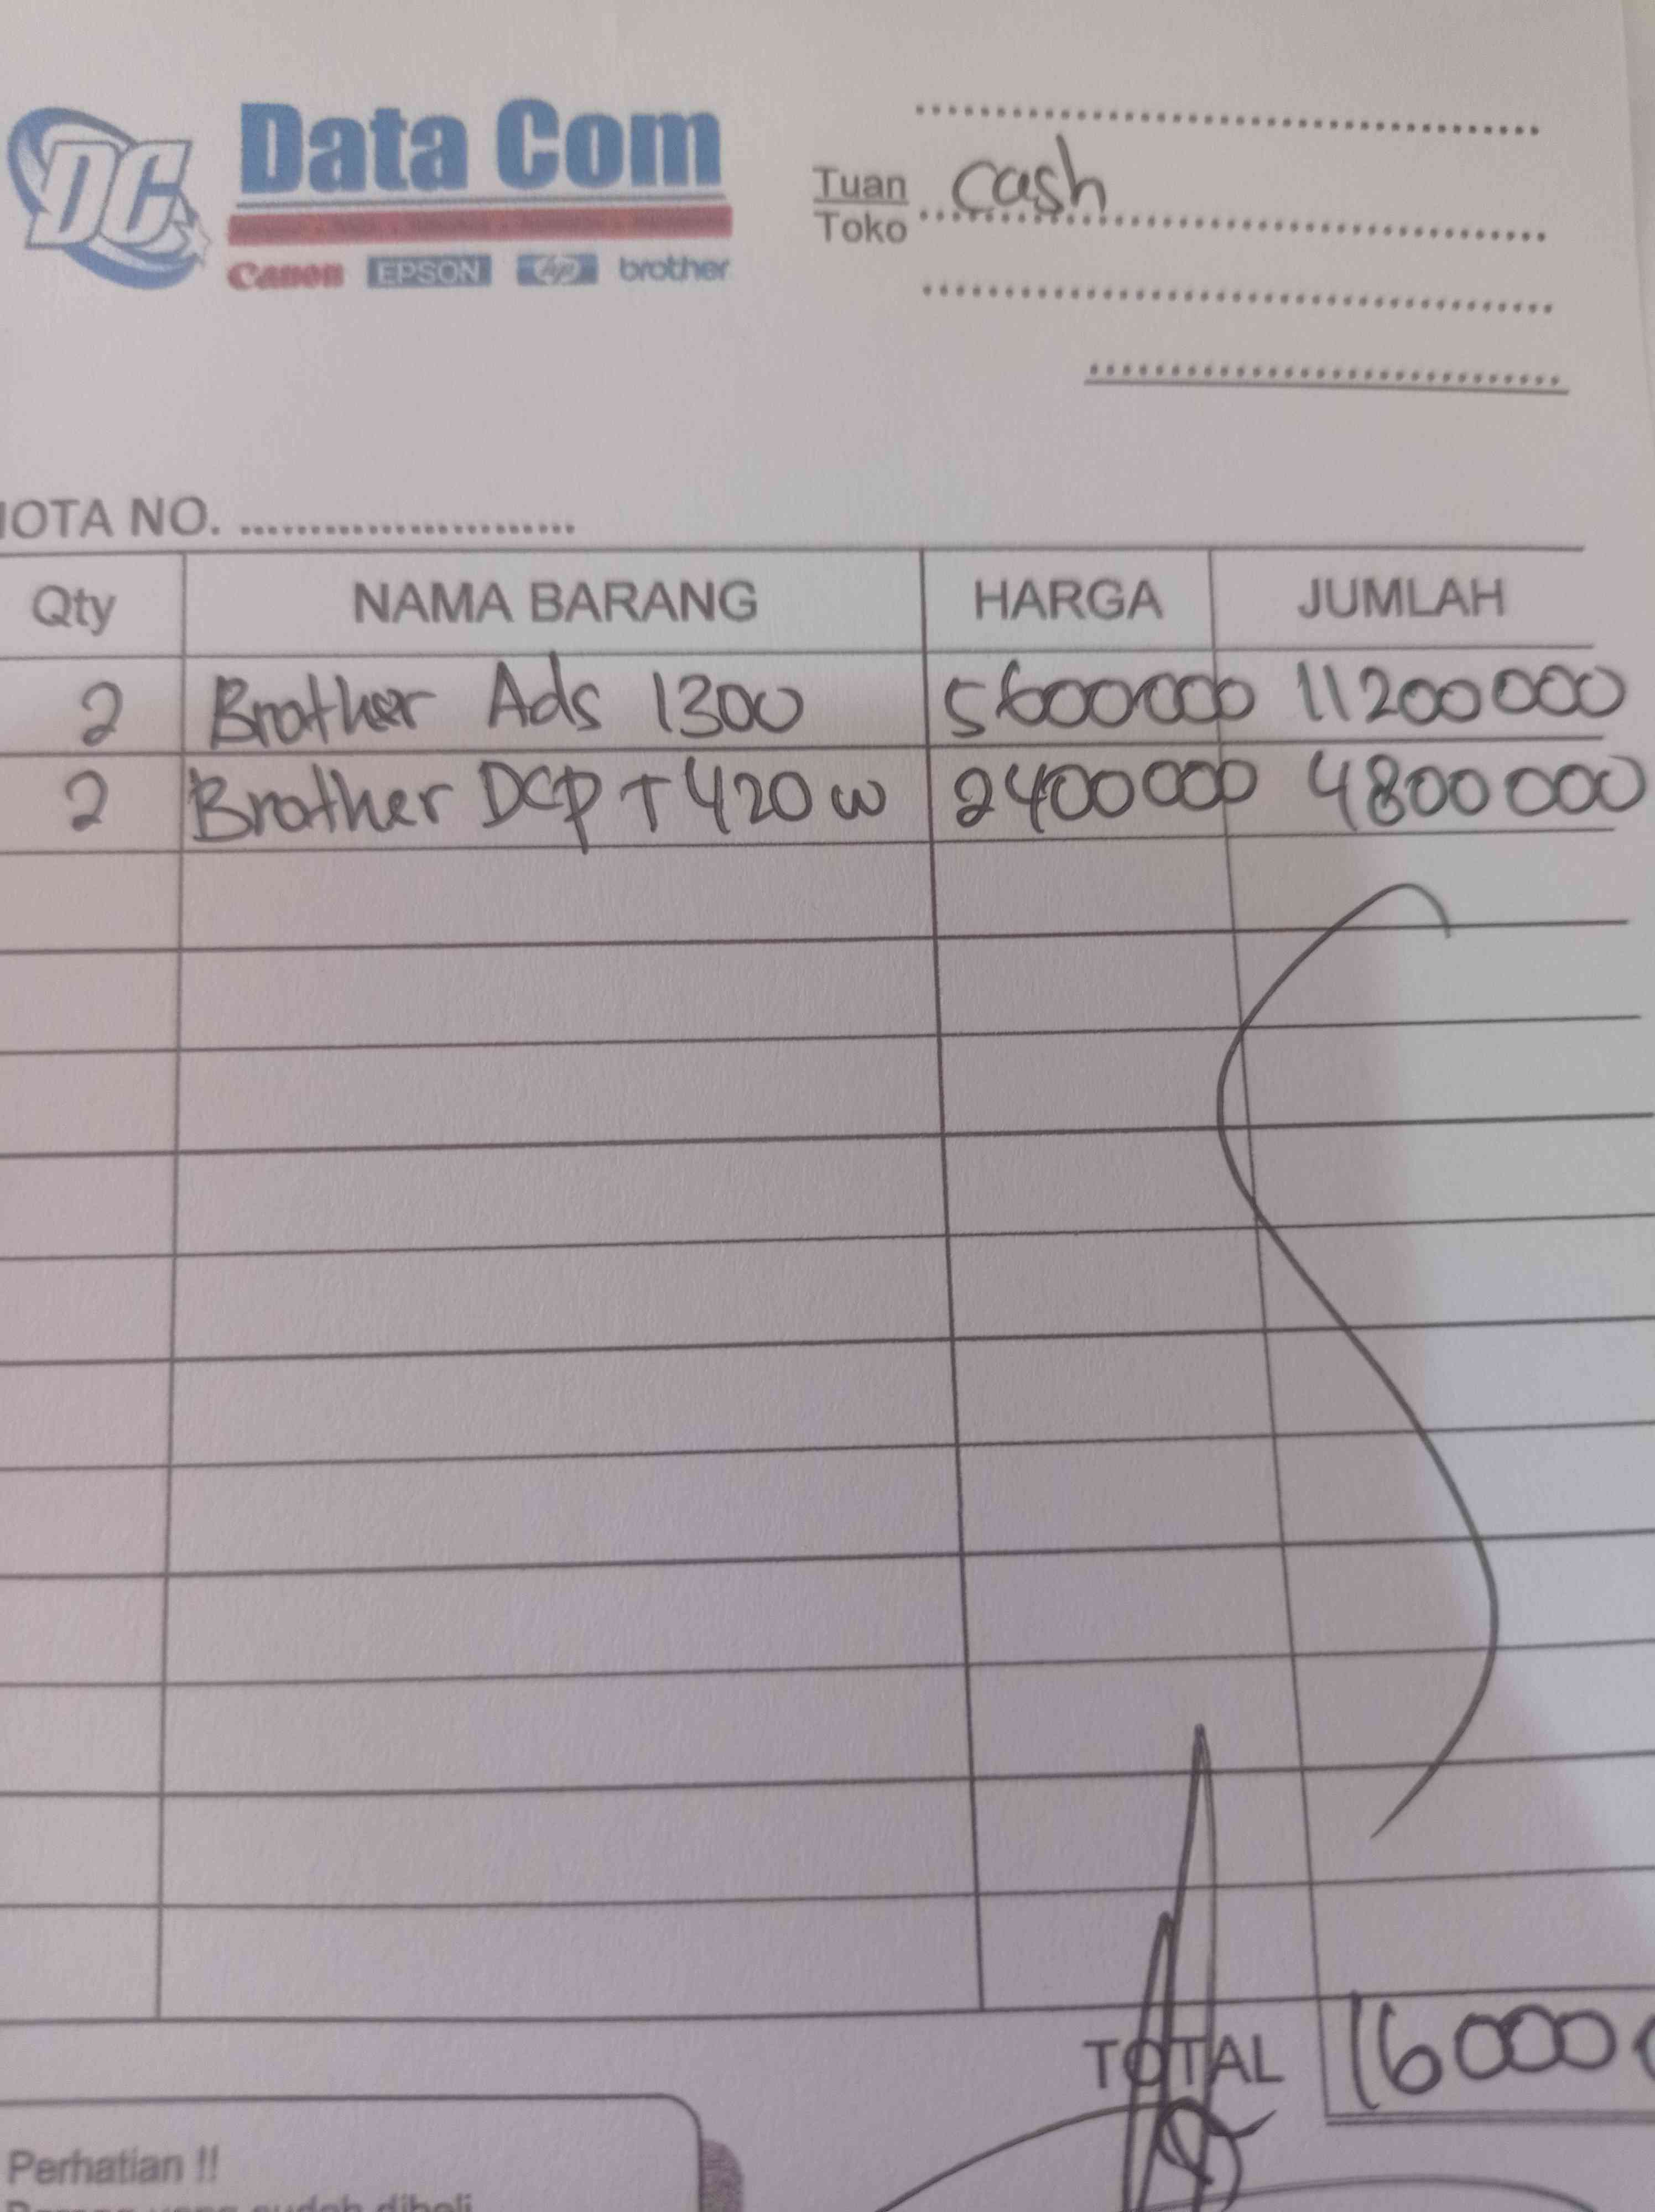 DC Data Com
Canon EPSON hp brother
Tuan cash
Toko
IOTA NO.
Qty NAMA BARANG HARGA JUMLAH
2 Brother Ads 1300 5600000 11200000
2 Brother Dcp T 420 w 2400000 4800000
TOTAL 160000
Perhatian !!
Barang yang sudah dibeli